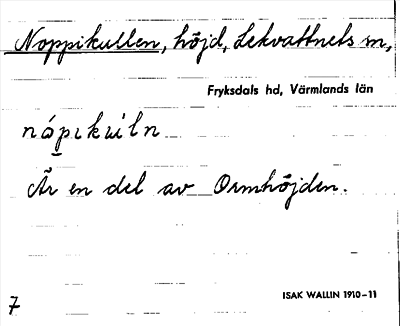 Noppikullen, höjd, Lekvattnets sn,
Fryksdals hd, Värmlands län
nópikuln
Är en del av Ormhöjden.
7
ISAK WALLIN 1910-11